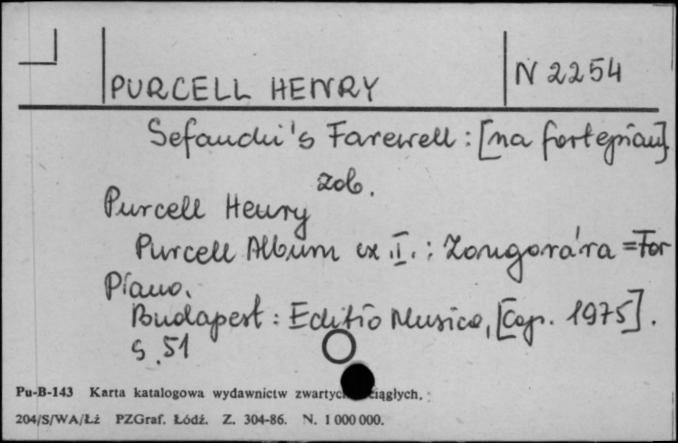 PURCELL HENRY
N 2254
Sefauchi's Farewell : [na fortepian].
zob.
Purcell Henry
Purcell Album ex I. : Zongorára = For
Piano.
Budapest : Editio Musica, [cop. 1975].
S. 51
Pu-B-143 Karta katalogowa wydawnictw zwartyc ciągłych.
204/S/WA/Łż PZGraf. Łódź. Z. 304-86. N. 1 000 000.